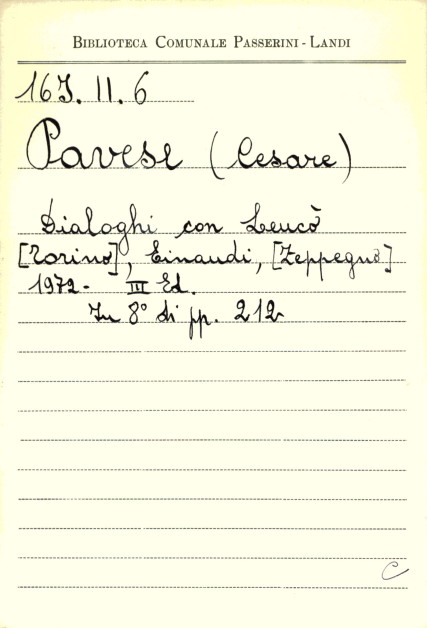 BIBLIOTECA COMUNALE PASSERINI - LANDI
16J. II. 6
Pavese (Cesare)
Dialoghi con Leucò
[Torino], Einaudi, [Zeppegno]
1972 - III Ed.
In 8° di pp. 212
C